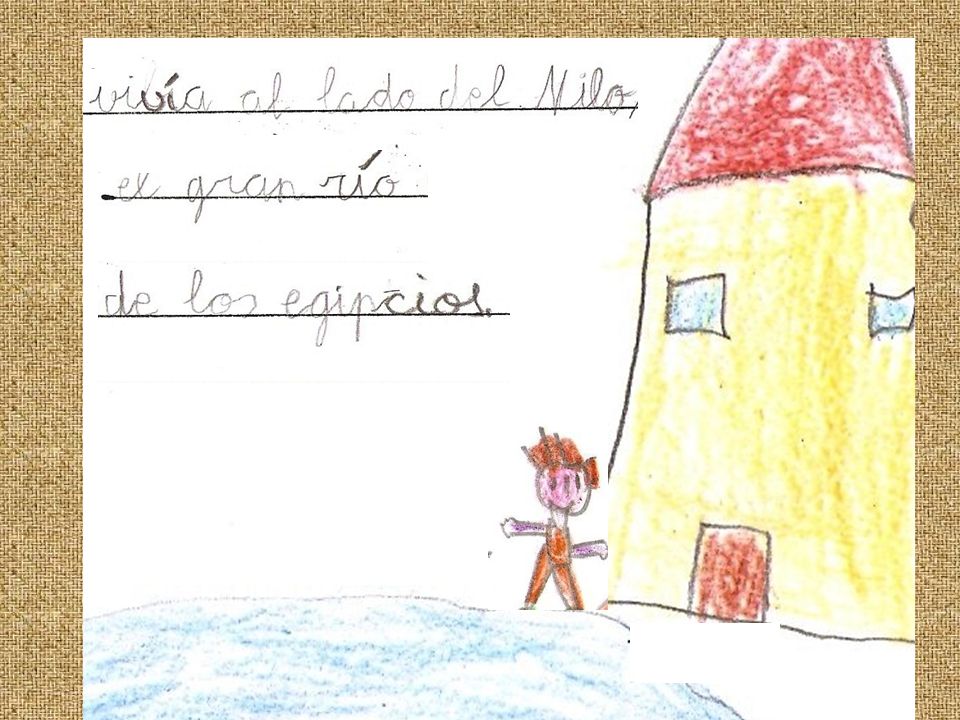 vivía al lado del Nilo,
ex gran río
de los egipcios.